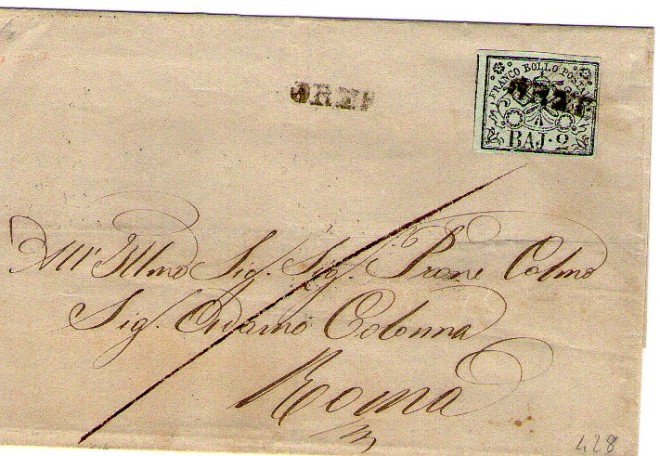 ORTE
FRANCO BOLLO POSTALE
ORTE
BAJ. 2
All' Illmo Sig. Sig. Prone Colmo
Sig. Adamo Colonna
Roma
428